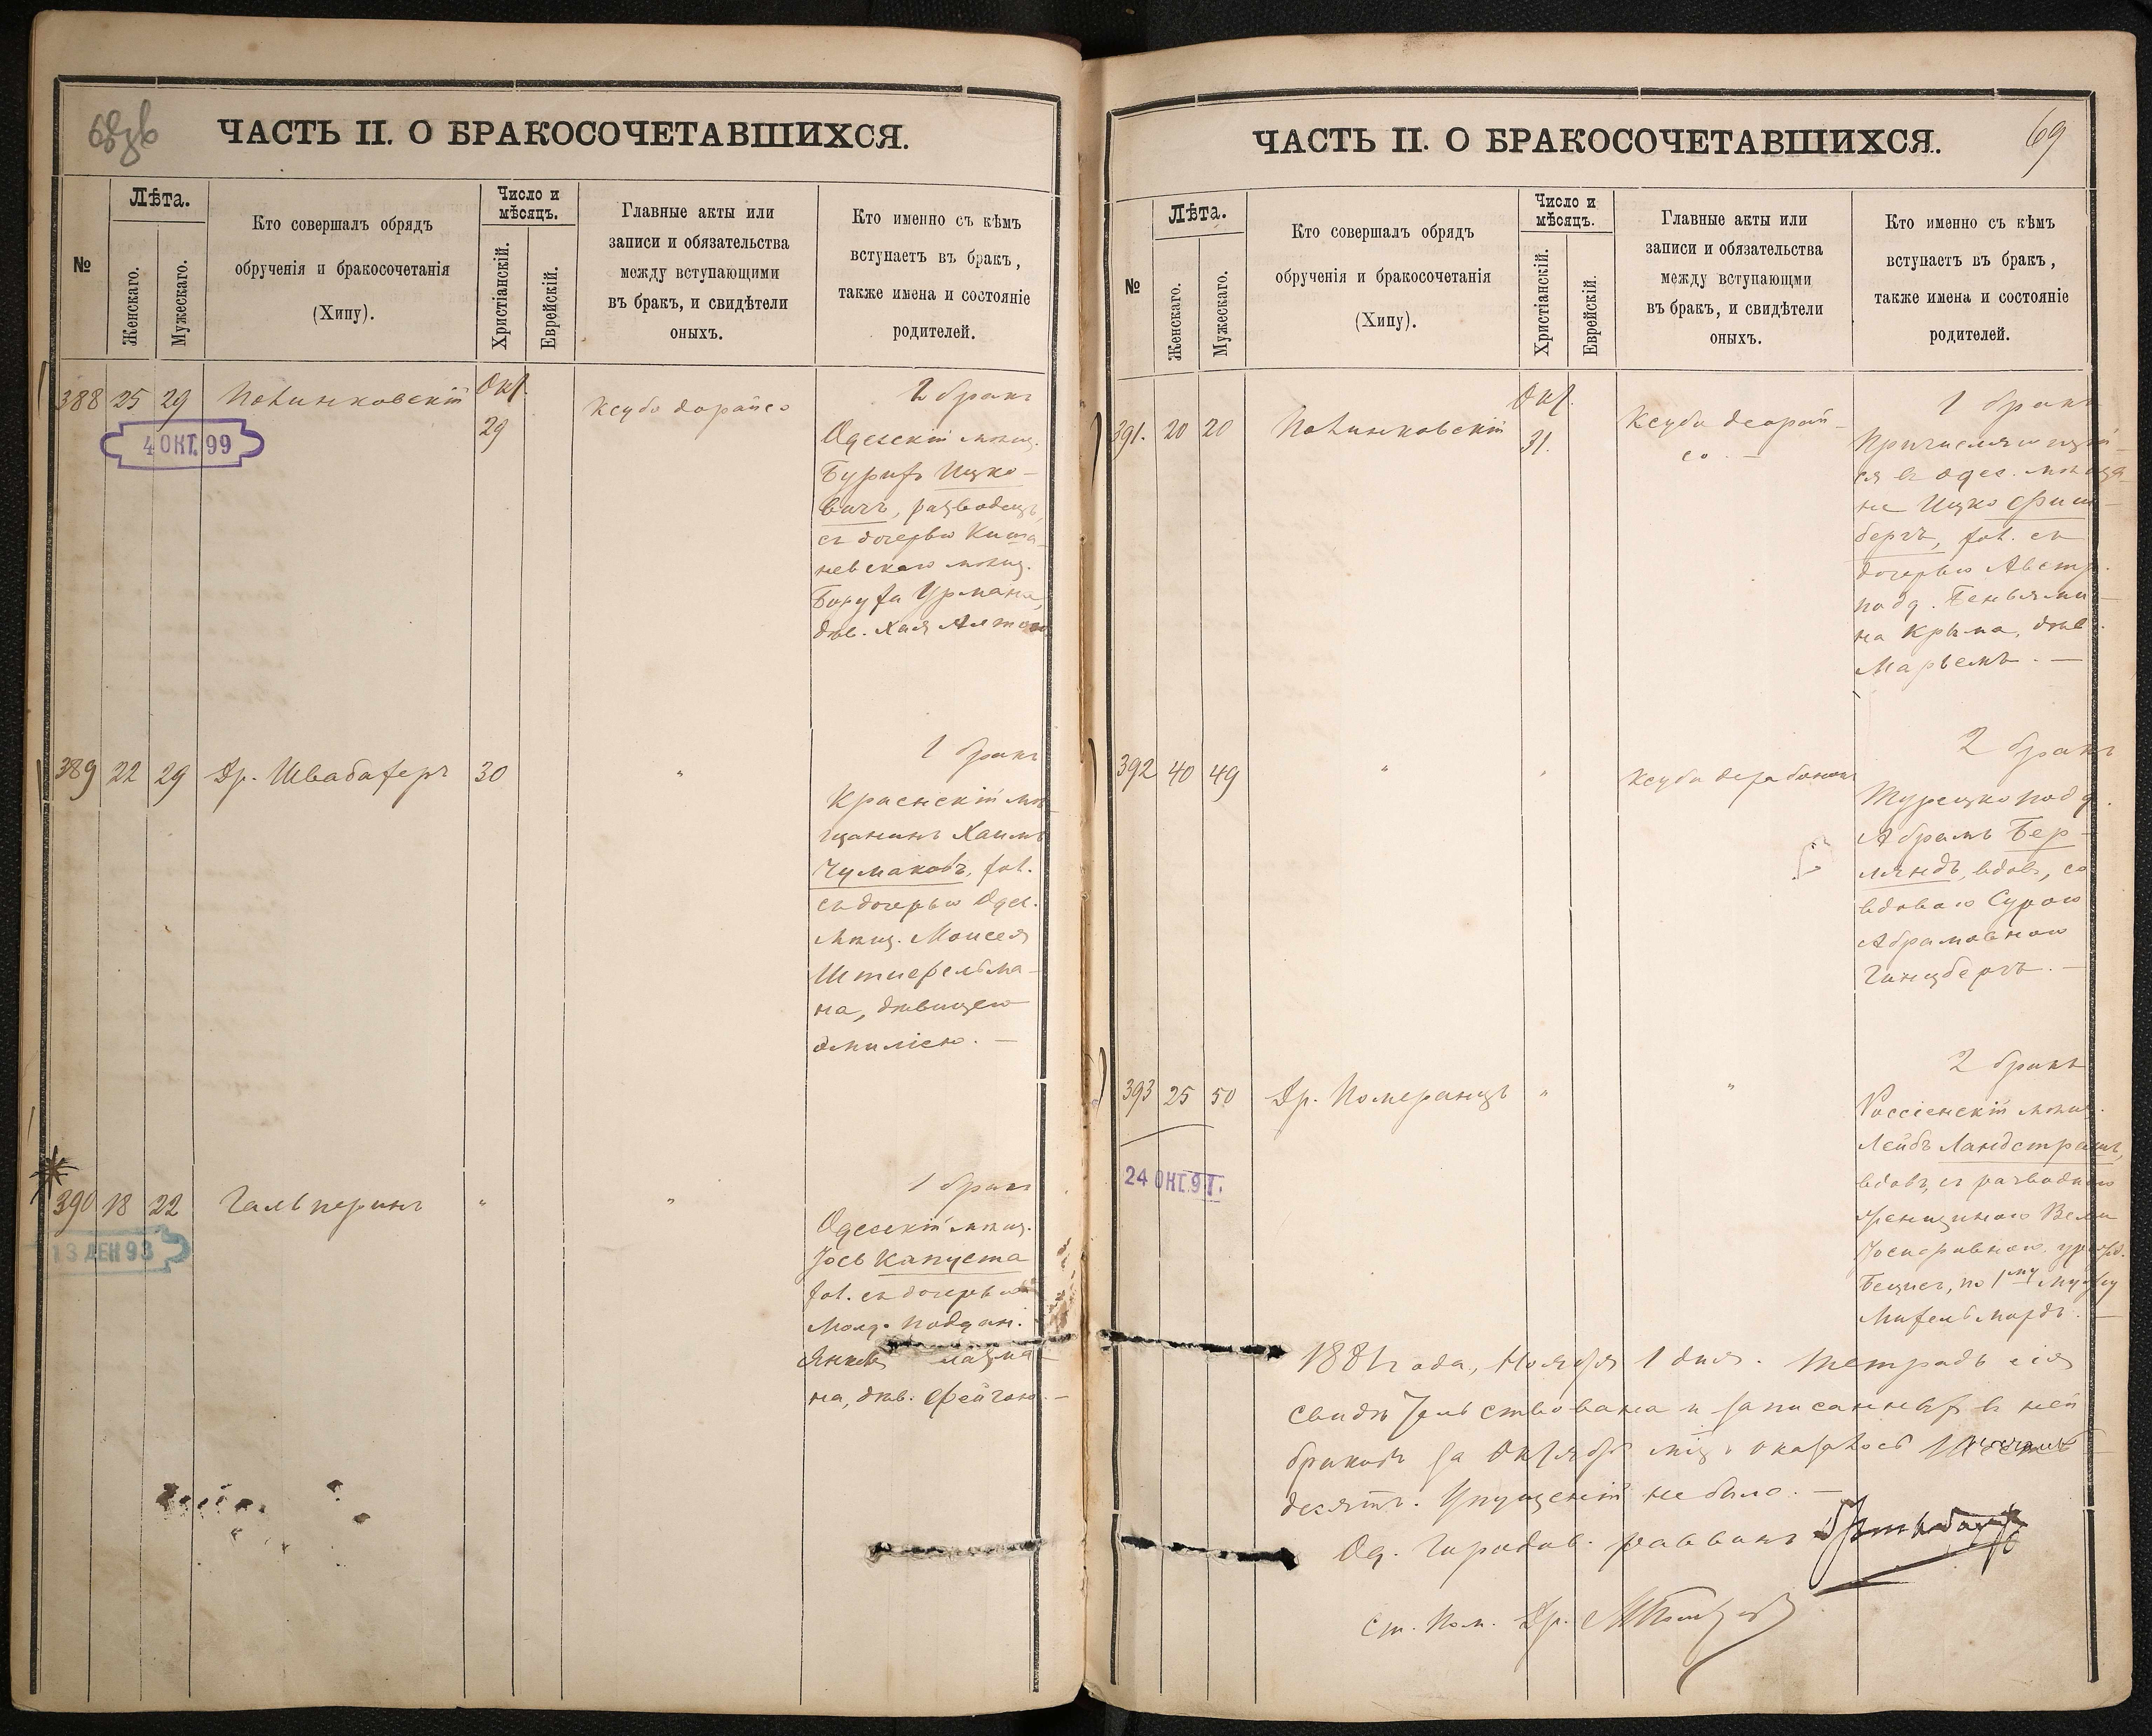 ЧАСТЬ II. О БРАКОСОЧЕТАВШИХСЯ.
№
Лѣта.
Женскаго.
Мужескаго.
Кто совершалъ обрядъ
обрученія и бракосочетанія
(Хипу).
Число и
мѣсяцъ.
Христіанскій.
Еврейскій.
Главные акты или
записи и обязательства
между вступающими
въ бракъ, и свидѣтели
оныхъ.
Кто именно съ кѣмъ
вступаетъ въ бракъ,
также имена и состояніе
родителей.
388 25 29 Полинковскій Окт.
29
4 ОКТ. 99
Ксубо дорайсо
2 бракъ
Одесскій мѣщ.
Бурихъ Ицко-
вичъ, разводецъ,
съ дочерью Киши-
невскаго мѣщ.
Боруха Урмана,
дѣв. Хая
389 22 29 Др. Швабахеръ 30 "
1 бракъ
Красискій мѣ
щанинъ Хаимъ
Чумаковъ, хол.
съ дочерью Одес.
мѣщ. Моисея
Штифельма-
на, дѣвицею
Эмиліею. —
390 18 22 Гальперинъ " "
13 ДЕК 93
1 бракъ
Одесскій мѣщ.
Іось Капуста
хол. съ дочерью
Молд. подан.
Янкеля
на, дѣв. Фейгою. —
ЧАСТЬ II. О БРАКОСОЧЕТАВШИХСЯ.
69
№
Лѣта.
Женскаго.
Мужескаго.
Кто совершалъ обрядъ
обрученія и бракосочетанія
(Хипу).
Число и
мѣсяцъ.
Христіанскій.
Еврейскій.
Главные акты или
записи и обязательства
между вступающми
въ бракъ, и свидѣтели
оныхъ.
Кто именно съ кѣмъ
вступаетъ въ бракъ,
также имена и состояніе
родителей.
391. 20 20 Полинковскій Окт.
31.
Ксубо деорай-
со. —
1 бракъ
Причисляющій-
ся въ Одес. мѣща-
не Ицко Фиш-
бергъ, хол. съ
дочерью Австр.
подд. Беньями-
на Крыма, дѣв.
Марьемъ. —
392 40 49 " " Ксубо дерабононъ
2 бракъ
Турецко подд.
Абрамъ Бер-
ляндъ, вдов., со
вдовою Сурою
Абрамовною
Гинцбергъ. —
393 25 50 Др. Померанцъ " "
24 ОКТ. 91.
2 бракъ
Россіенскій мѣщ.
Лейбъ Ландстрамъ,
вдов., съ разводною
женщиною
Іосифовною, урожд.
по 1му мужу
1881 года, Ноября 1 дня. Тетрадь сія
свидѣтельствована и записанныхъ въ ней
браковъ за Октябрь мѣц. оказалось
десять. Упущеній не было. —
Од. Городов. раввинъ
Ст. Пом. Др.